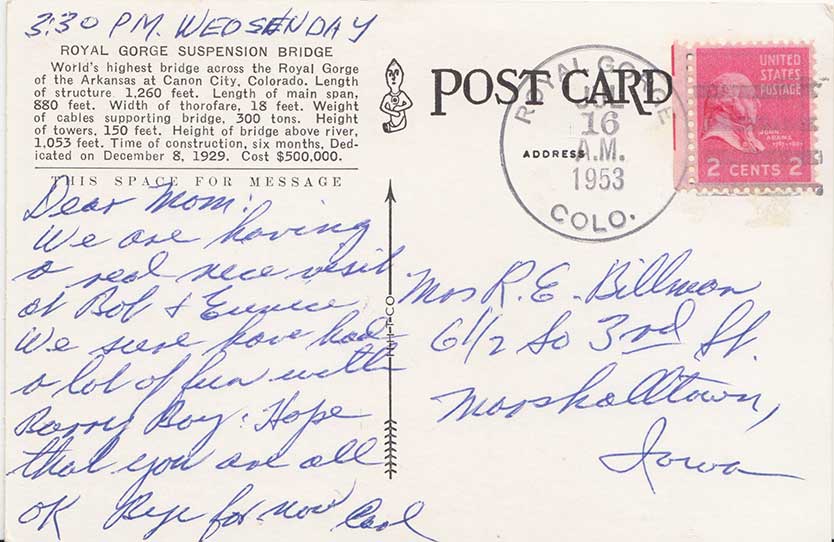 3:30 PM. WEDSENDAY
ROYAL GORGE SUSPENSION BRIDGE
World's highest bridge across the Royal Gorge
of the Arkansas at Canon City, Colorado. Length
of structure 1,260 feet. Length of main span,
880 feet. Width of thorofare, 18 feet. Weight
of cables supporting bridge, 300 tons. Height
of towers, 150 feet. Height of bridge above river,
1,053 feet. Time of construction, six months, Ded-
icated on December 8, 1929. Cost $500,000.
THIS SPACE FOR MESSAGE
Dear Mom:
We are having
a real nice visit
at Bob & Eunice
We sure have had
a lot of fun with
Barry Boy. Hope
that you are all
OK Bye for now Carl
POST CARD
ADDRESS
ROYAL GORGE
JUL
16
A.M.
1953
COLO.
UNITED
STATES
POSTAGE
JOHN
ADAMS
1797-1801
2 CENTS 2
Mrs R. E. Billman
611/2 So 3rd St.
Marshalltown,
Iowa